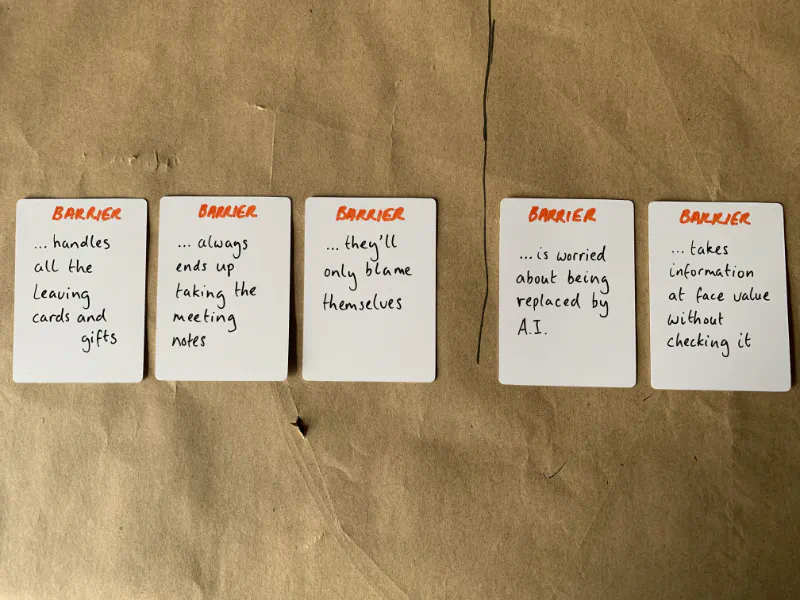 BARRIER
... handles
all the
Leaving
cards and
gifts
BARRIER
... always
ends up
taking the
meeting
notes
BARRIER
... they'll
only blame
themselves
BARRIER
... is worried
about being
replaced by
A.I.
BARRIER
... takes
information
at face value
without
checking it